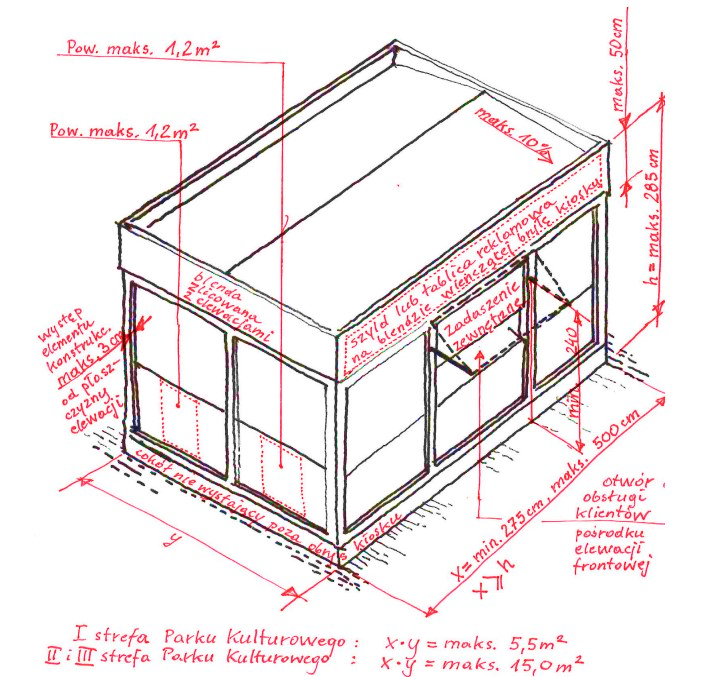 Pow. maks. 1,2m²
Pow. maks. 1,2m²
maks. 50cm
maks. 10%
h= maks. 285cm
szyld lub tablica reklamowa
na blendzie wieńczącej bryłę kiosku
blenda
zlicowana
z elewacjami
występ
elementu
konstrukc.
maks 3cm
od płasz-
czyzny
elewacji
zadaszenie
zewnętrzne
min. 240
cokół nie wystający poza obrys kiosku
y
X= min. 275cm, maks. 500cm
x ≥ y
otwór
obsługi
klientów
pośrodku
elewacji
frontowej
I strefa Parku Kulturowego : x·y = maks. 5,5m²
II i III strefa Parku Kulturowego : x·y = maks. 15,0m²